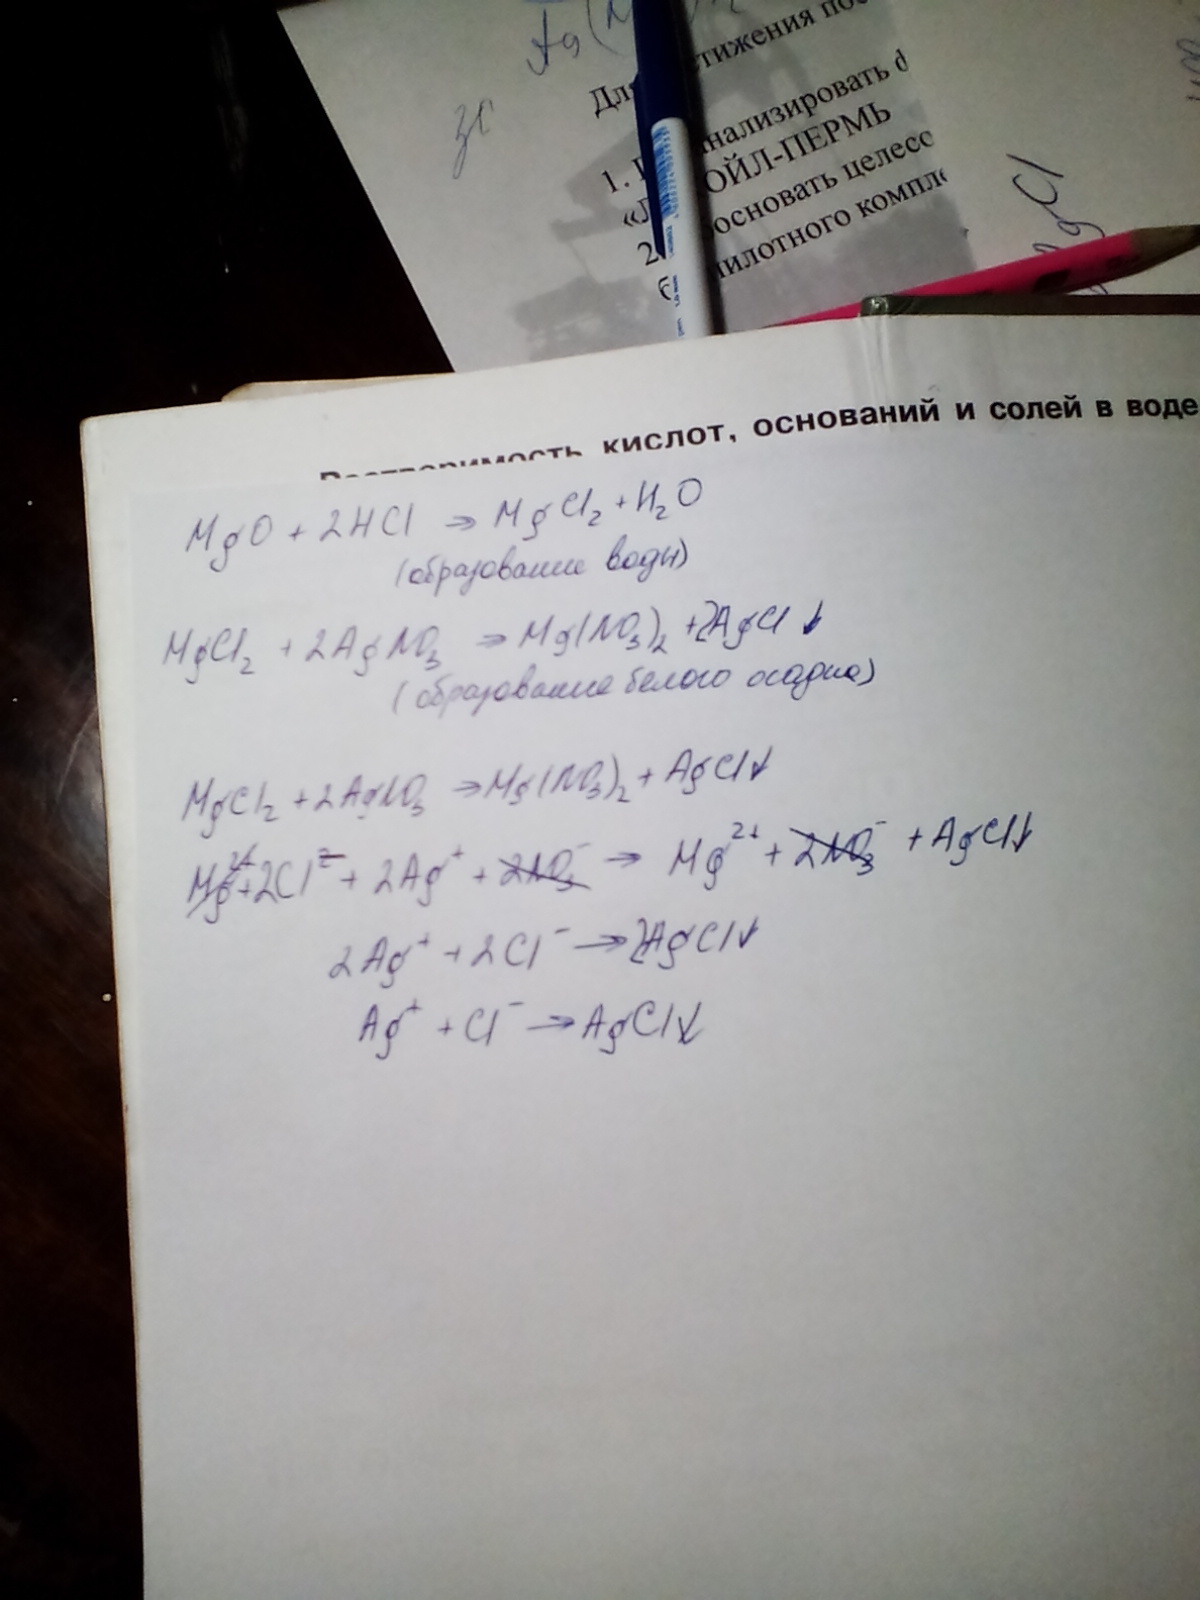 Ag(N
тижения по
нализировать
1.
ОЙЛ-ПЕРМЬ
2
основать целесо
пилотного компл
gCl
Растворимость кислот, оснований и солей в воде
MgO + 2HCl → MgCl₂ + H₂O
(образование воды)
MgCl₂ + 2AgNO₃ → Mg(NO₃)₂ + 2AgCl↓
(образование белого осадка)
MgCl₂ + 2AgNO₃ → Mg(NO₃)₂ + AgCl↓
Mg²⁺ + 2Cl⁻ + 2Ag⁺ + 2NO₃⁻ → Mg²⁺ + 2NO₃⁻ + AgCl↓
2Ag⁺ + 2Cl⁻ → 2AgCl↓
Ag⁺ + Cl⁻ → AgCl↓